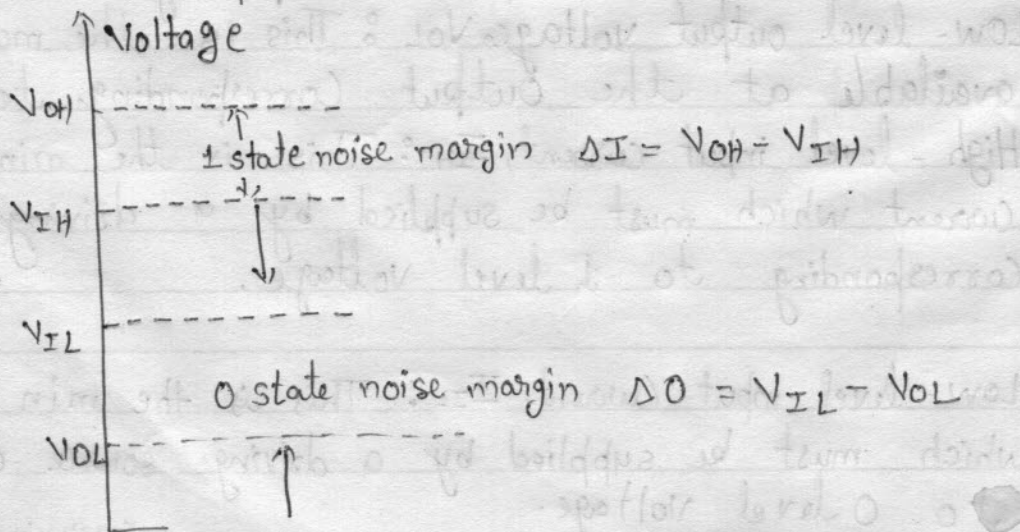 Voltage
VOH
1 state noise margin ΔI = VOH - VIH
VIH
VIL
0 state noise margin ΔO = VIL - VOL
VOL